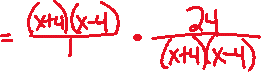 = \frac{(x+4)(x-4)}{1} \cdot \frac{24}{(x+4)(x-4)}